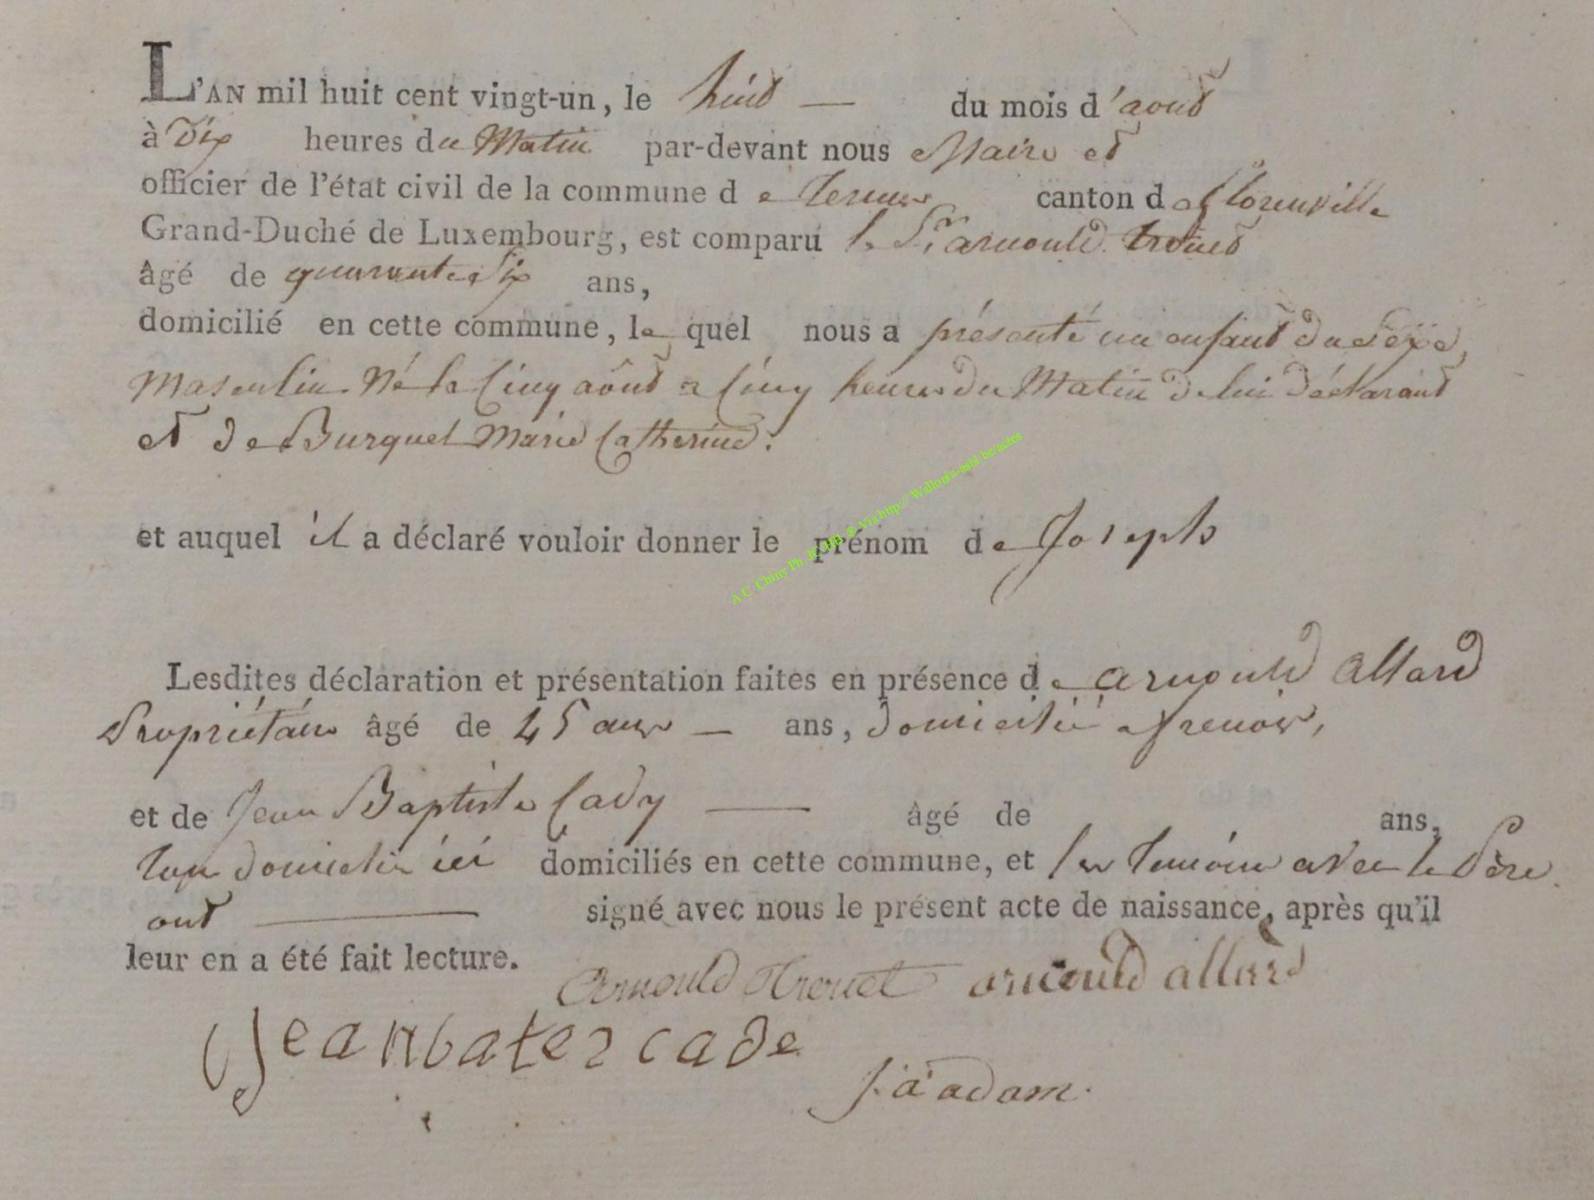 L'AN mil huit cent vingt-un, le huit — du mois d'aout
à Dix heures du Matin par-devant nous Maire et
officier de l'état civil de la commune de canton de florenville
Grand-Duché de Luxembourg, est comparu le Sr arnould trouet
âgé de quarante Six ans,
domicilié en cette commune, le quel nous a présenté un enfant du Sexe,
Masculin Né le Cinq aôut a Cinq heures du Matin de lui déclarant
et de Burquel Marie Catherine.
et auquel il a déclaré vouloir donner le prénom de Joseph
A.C. Chiny Ph. via http://
Lesdites déclaration et présentation faites en présence de arnould allard
Propriétaire âgé de 45 ans — ans, domicilié a frenois,
et de Jean Baptiste Cady — âgé de ans,
domicilié ici domiciliés en cette commune, et les temoins avec le Père
ont — signé avec nous le présent acte de naissance, après qu'il
leur en a été fait lecture.
Arnould Trouet arnould allard
Jean bates cade
J. a adam.